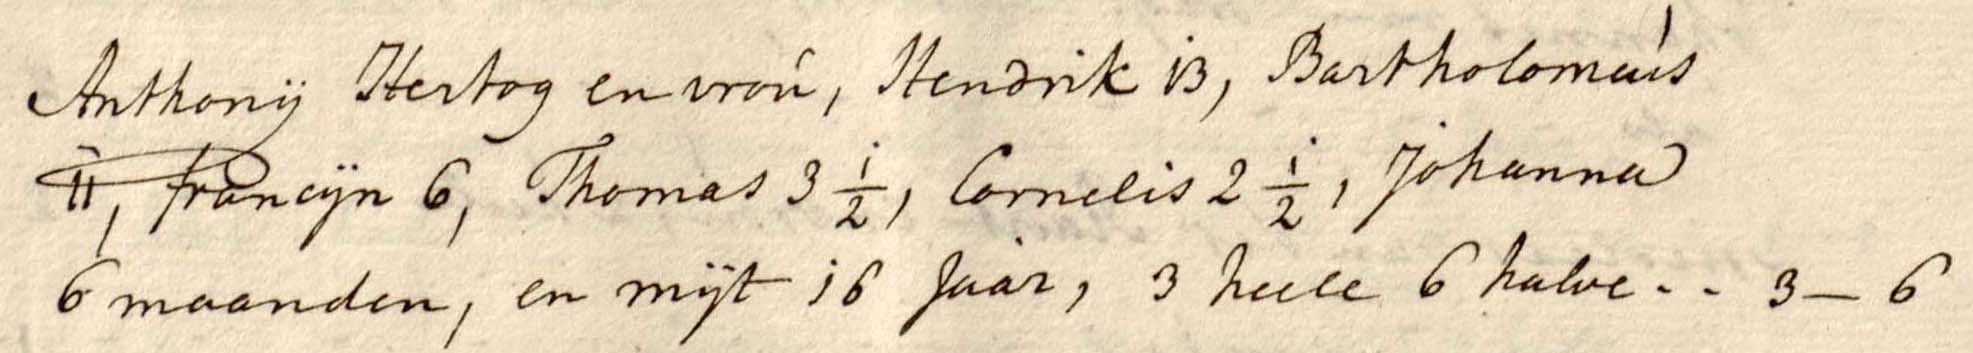 Anthonij Hertog en vrou, Hendrik 13, Bartholomeus
11, Francijn 6, Thomas 3 1/2, Cornelis 2 1/2, Johanna
6 maanden, en mijt 16 Jaar, 3 heele 6 halve - - 3 — 6